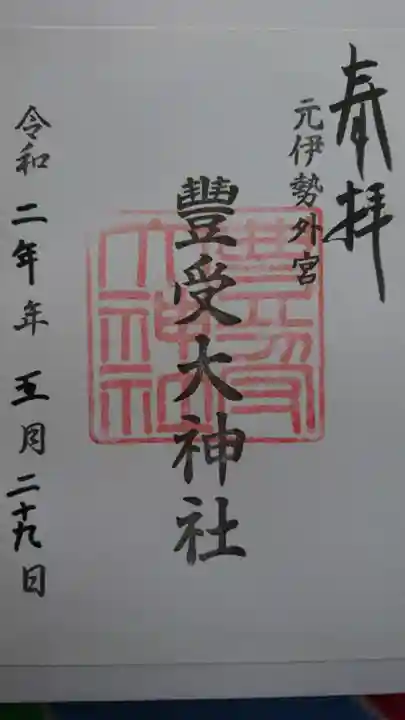 奉拝
元伊勢外宮
豐受大神社
豊受
大神社
令和二年年五月二十九日